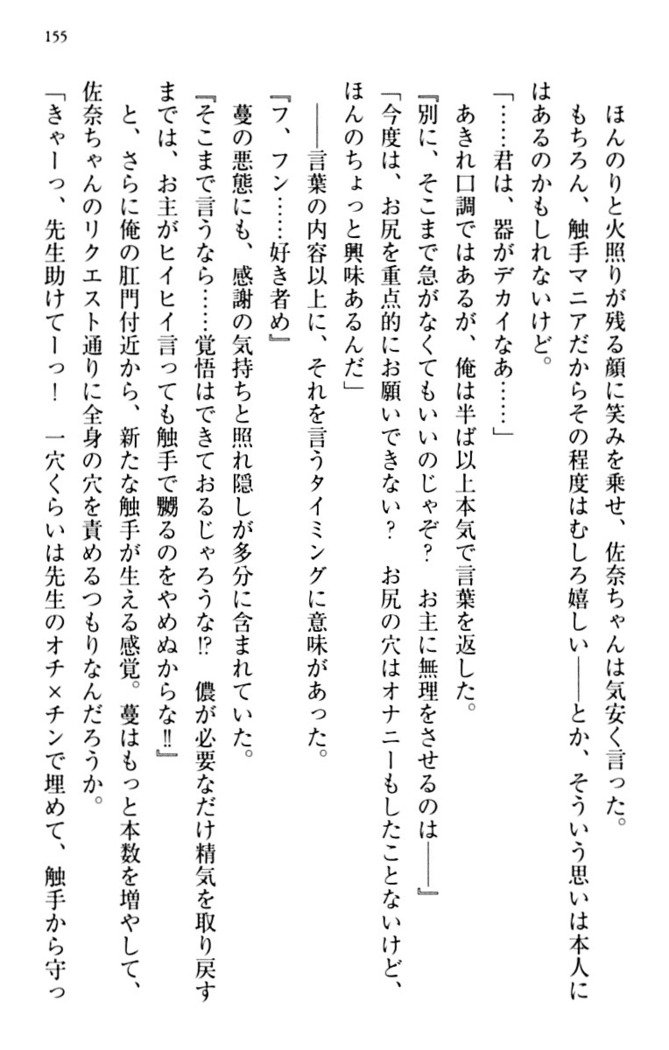 155
ほんのりと火照りが残る顔に笑みを乗せ、佐奈ちゃんは気安く言った。
もちろん、触手マニアだからその程度はむしろ嬉しい――とか、そういう思いは本人に
はあるのかもしれないけど。
「……君は、器がデカイなあ……」
あきれ口調ではあるが、俺は半ば以上本気で言葉を返した。
『別に、そこまで急がなくてもいいのじゃぞ?　お主に無理をさせるのは――』
「今度は、お尻を重点的にお願いできない?　お尻の穴はオナニーもしたことないけど、
ほんのちょっと興味あるんだ」
――言葉の内容以上に、それを言うタイミングに意味があった。
『フ、フン……好き者め』
蔓の悪態にも、感謝の気持ちと照れ隠しが多分に含まれていた。
『そこまで言うなら……覚悟はできておるじゃろうな!?　儂が必要なだけ精気を取り戻す
までは、お主がヒイヒイ言っても触手で嬲るのをやめぬからな!!』
と、さらに俺の肛門付近から、新たな触手が生える感覚。蔓はもっと本数を増やして、
佐奈ちゃんのリクエスト通りに全身の穴を責めるつもりなんだろうか。
「きゃーっ、先生助けてーっ!　一穴くらいは先生のオチ×チンで埋めて、触手から守っ